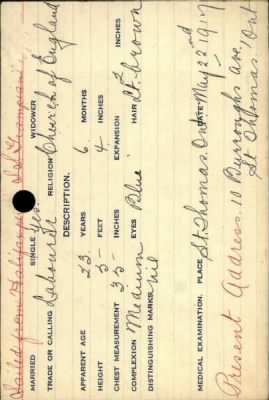 Sailed from Halifax per S.S. Grampian
MARRIED SINGLE yes WIDOWER
TRADE OR CALLING Labourer RELIGION Church of England
DESCRIPTION.
APPARENT AGE 23 YEARS 6 MONTHS
HEIGHT 5 FEET 4 INCHES
CHEST MEASUREMENT 35 INCHES EXPANSION 2 INCHES
COMPLEXION Medium EYES Blue HAIR Lt. brown
DISTINGUISHING MARKS Nil
MEDICAL EXAMINATION. PLACE St. Thomas. Ont DATE May 22nd 1917
Present Address. 10 Burroughs Ave,
St Thomas, Ont